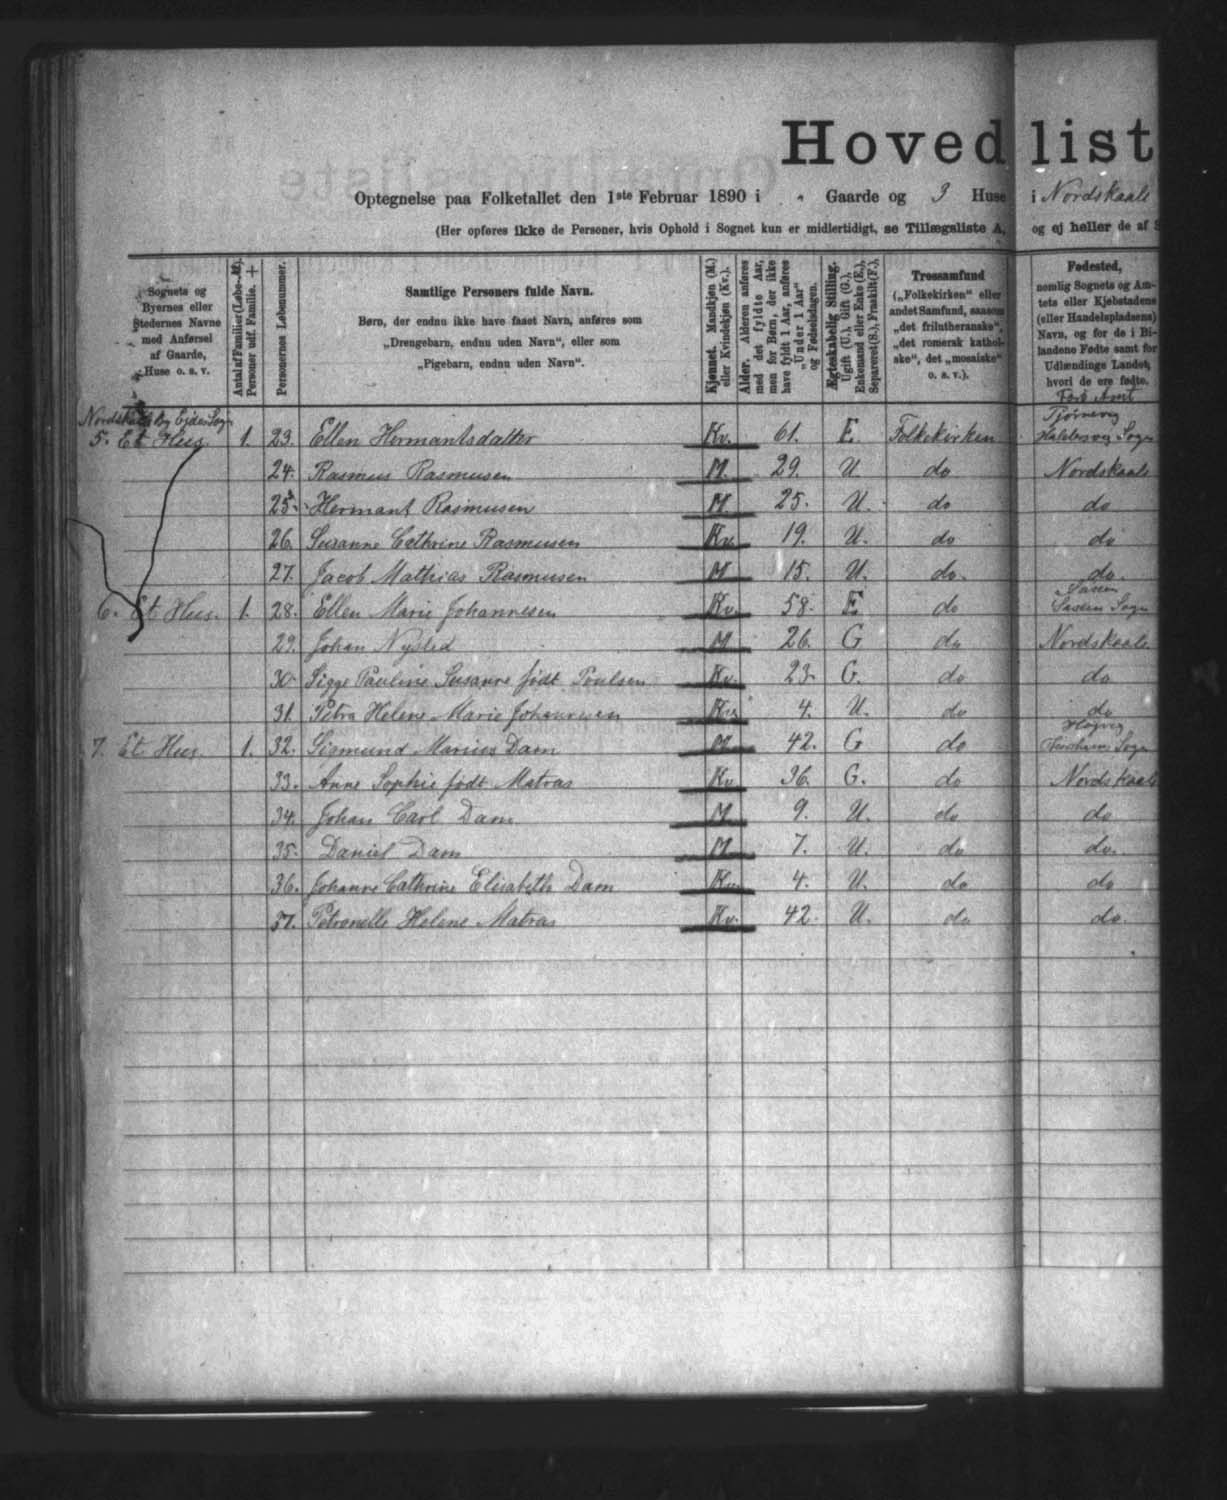 Hovedlist
Optegnelse paa Folketallet den 1ste Februar 1890 i " Gaarde og 3 Huse i Nordskaale
(Her opføres ikke de Personer, hvis Ophold i Sognet kun er midlertidigt, se Tillægsliste A, og ej heller de af S
Sognets og
Byernes eller
Stedernes Navne
med Anførsel
af Gaarde,
Huse o. s. v.
Antal af Familier (Løbe-№).
Personer udf. Familie. +
Personernes Løbenummer.
Samtlige Personers fulde Navn.
Børn, der endnu ikke have faaet Navn, anføres som
„Drengebarn, endnu uden Navn", eller som
„Pigebarn, endnu uden Navn".
Kjønnet. Mandkjøn (M.)
eller Kvindekjøn (Kv.).
Alder. Alderen anføres
med det fyldte Aar,
men for Børn, der ikke
have fyldt 1 Aar, anføres
„Under 1 Aar"
og Fødselsdagen.
Ægteskabelig Stilling.
Ugift (U.), Gift (G.),
Enkemand eller Enke (E.),
Separeret (S.), Fraskilt (F.).
Trossamfund
(„Folkekirken" eller
andet Samfund, saasom
„det frilutheranske",
„det romersk kathol-
ske", det „mosaiske"
o. s. v.).
Fødested,
nemlig Sognets og Am-
tets eller Kjøbstadens
(eller Handelspladsens)
Navn, og for de i Bi-
landene Fødte samt for
Udlændinge Landet,
hvori de ere fødte.
Færø Amt
Nordskaale By Ejde Sogn
Tjørnevig
5. Et Hus. 1. 23. Ellen Hermantsdatter Kv. 61. E. Folkekirken Haldersvig Sogn
24. Rasmus Rasmusen M. 29. U. do Nordskaale
25. Hermant Rasmusen M 25. U. do do
26. Susanne Cathrine Rasmusen Kv. 19. U. do do
27. Jacob Mathias Rasmusen M 15. U. do. do.
6. Et Hus. 1. 28. Ellen Marie Johannesen Kv. 58. E do Sogn
29. Johan Nysted M 26. G do Nordskaale
30. Sigge Pauline Susanne født Poulsen Kv. 23. G. do do
31. Petra Helene Marie Johannesen Kv. 4. U. do do
7. Et Hus. 1. 32. Sigmund Marius Dam M 42. G do Sogn
33. Anne Sophie født Matras Kv. 36. G. do Nordskaale
34. Johan Carl Dam M 9. U. do do
35. Daniel Dam M 7. U. do do.
36. Johanne Cathrine Elisabeth Dam Kv. 4. U. do do
37. Petronelle Helene Matras Kv. 42. U. do do.